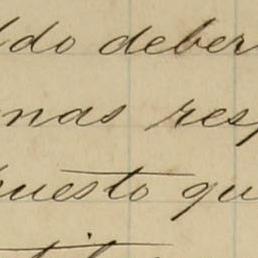 ldo deber
nas res
puesto qu